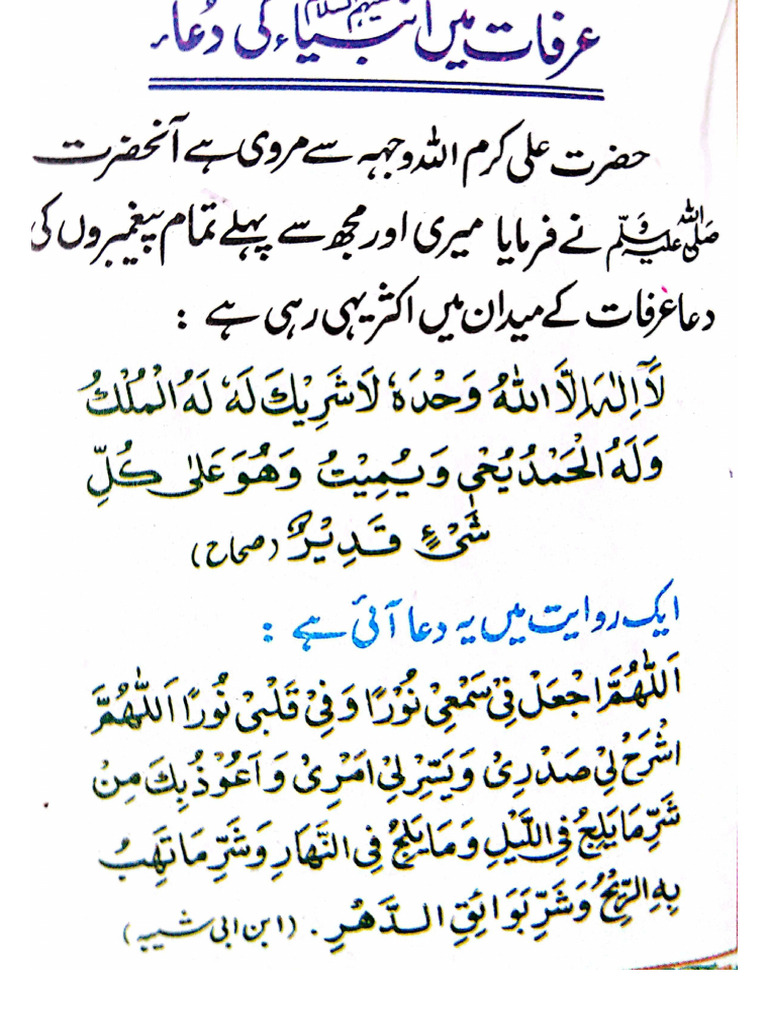 عرفات میں انبیاء علیہم السلام کی دُعاء
حضرت علی کرم اللہ وجہہ سے مروی ہے آنحضرت
صلی اللہ علیہ وسلم نے فرمایا میری اور مجھ سے پہلے تمام پیغمبروں کی
دعا عرفات کے میدان میں اکثر یہی رہی ہے :
لَآ اِلٰہَ اِلَّا اللّٰہُ وَحْدَہٗ لَا شَرِیْكَ لَہٗ لَہُ الْمُلْكُ
وَلَہُ الْحَمْدُ یُحْیٖ وَیُمِیْتُ وَھُوَ عَلٰی کُلِّ
شَیْءٍ قَدِیْرٌ (صحاح)
ایک روایت میں یہ دعا آئی ہے :
اَللّٰھُمَّ اجْعَلْ فِیْ سَمْعِیْ نُوْرًا وَفِیْ قَلْبِیْ نُوْرًا اَللّٰھُمَّ
اشْرَحْ لِیْ صَدْرِیْ وَیَسِّرْ لِیْ اَمْرِیْ وَاَعُوْذُ بِكَ مِنْ
شَرِّ مَا یَلِجُ فِی اللَّیْلِ وَمَا یَلِجُ فِی النَّھَارِ وَشَرِّ مَا تَھِبُّ
بِہِ الرِّیْحُ وَشَرِّ بَوَائِقِ الدَّھْرِ . (ابن ابی شیبہ)